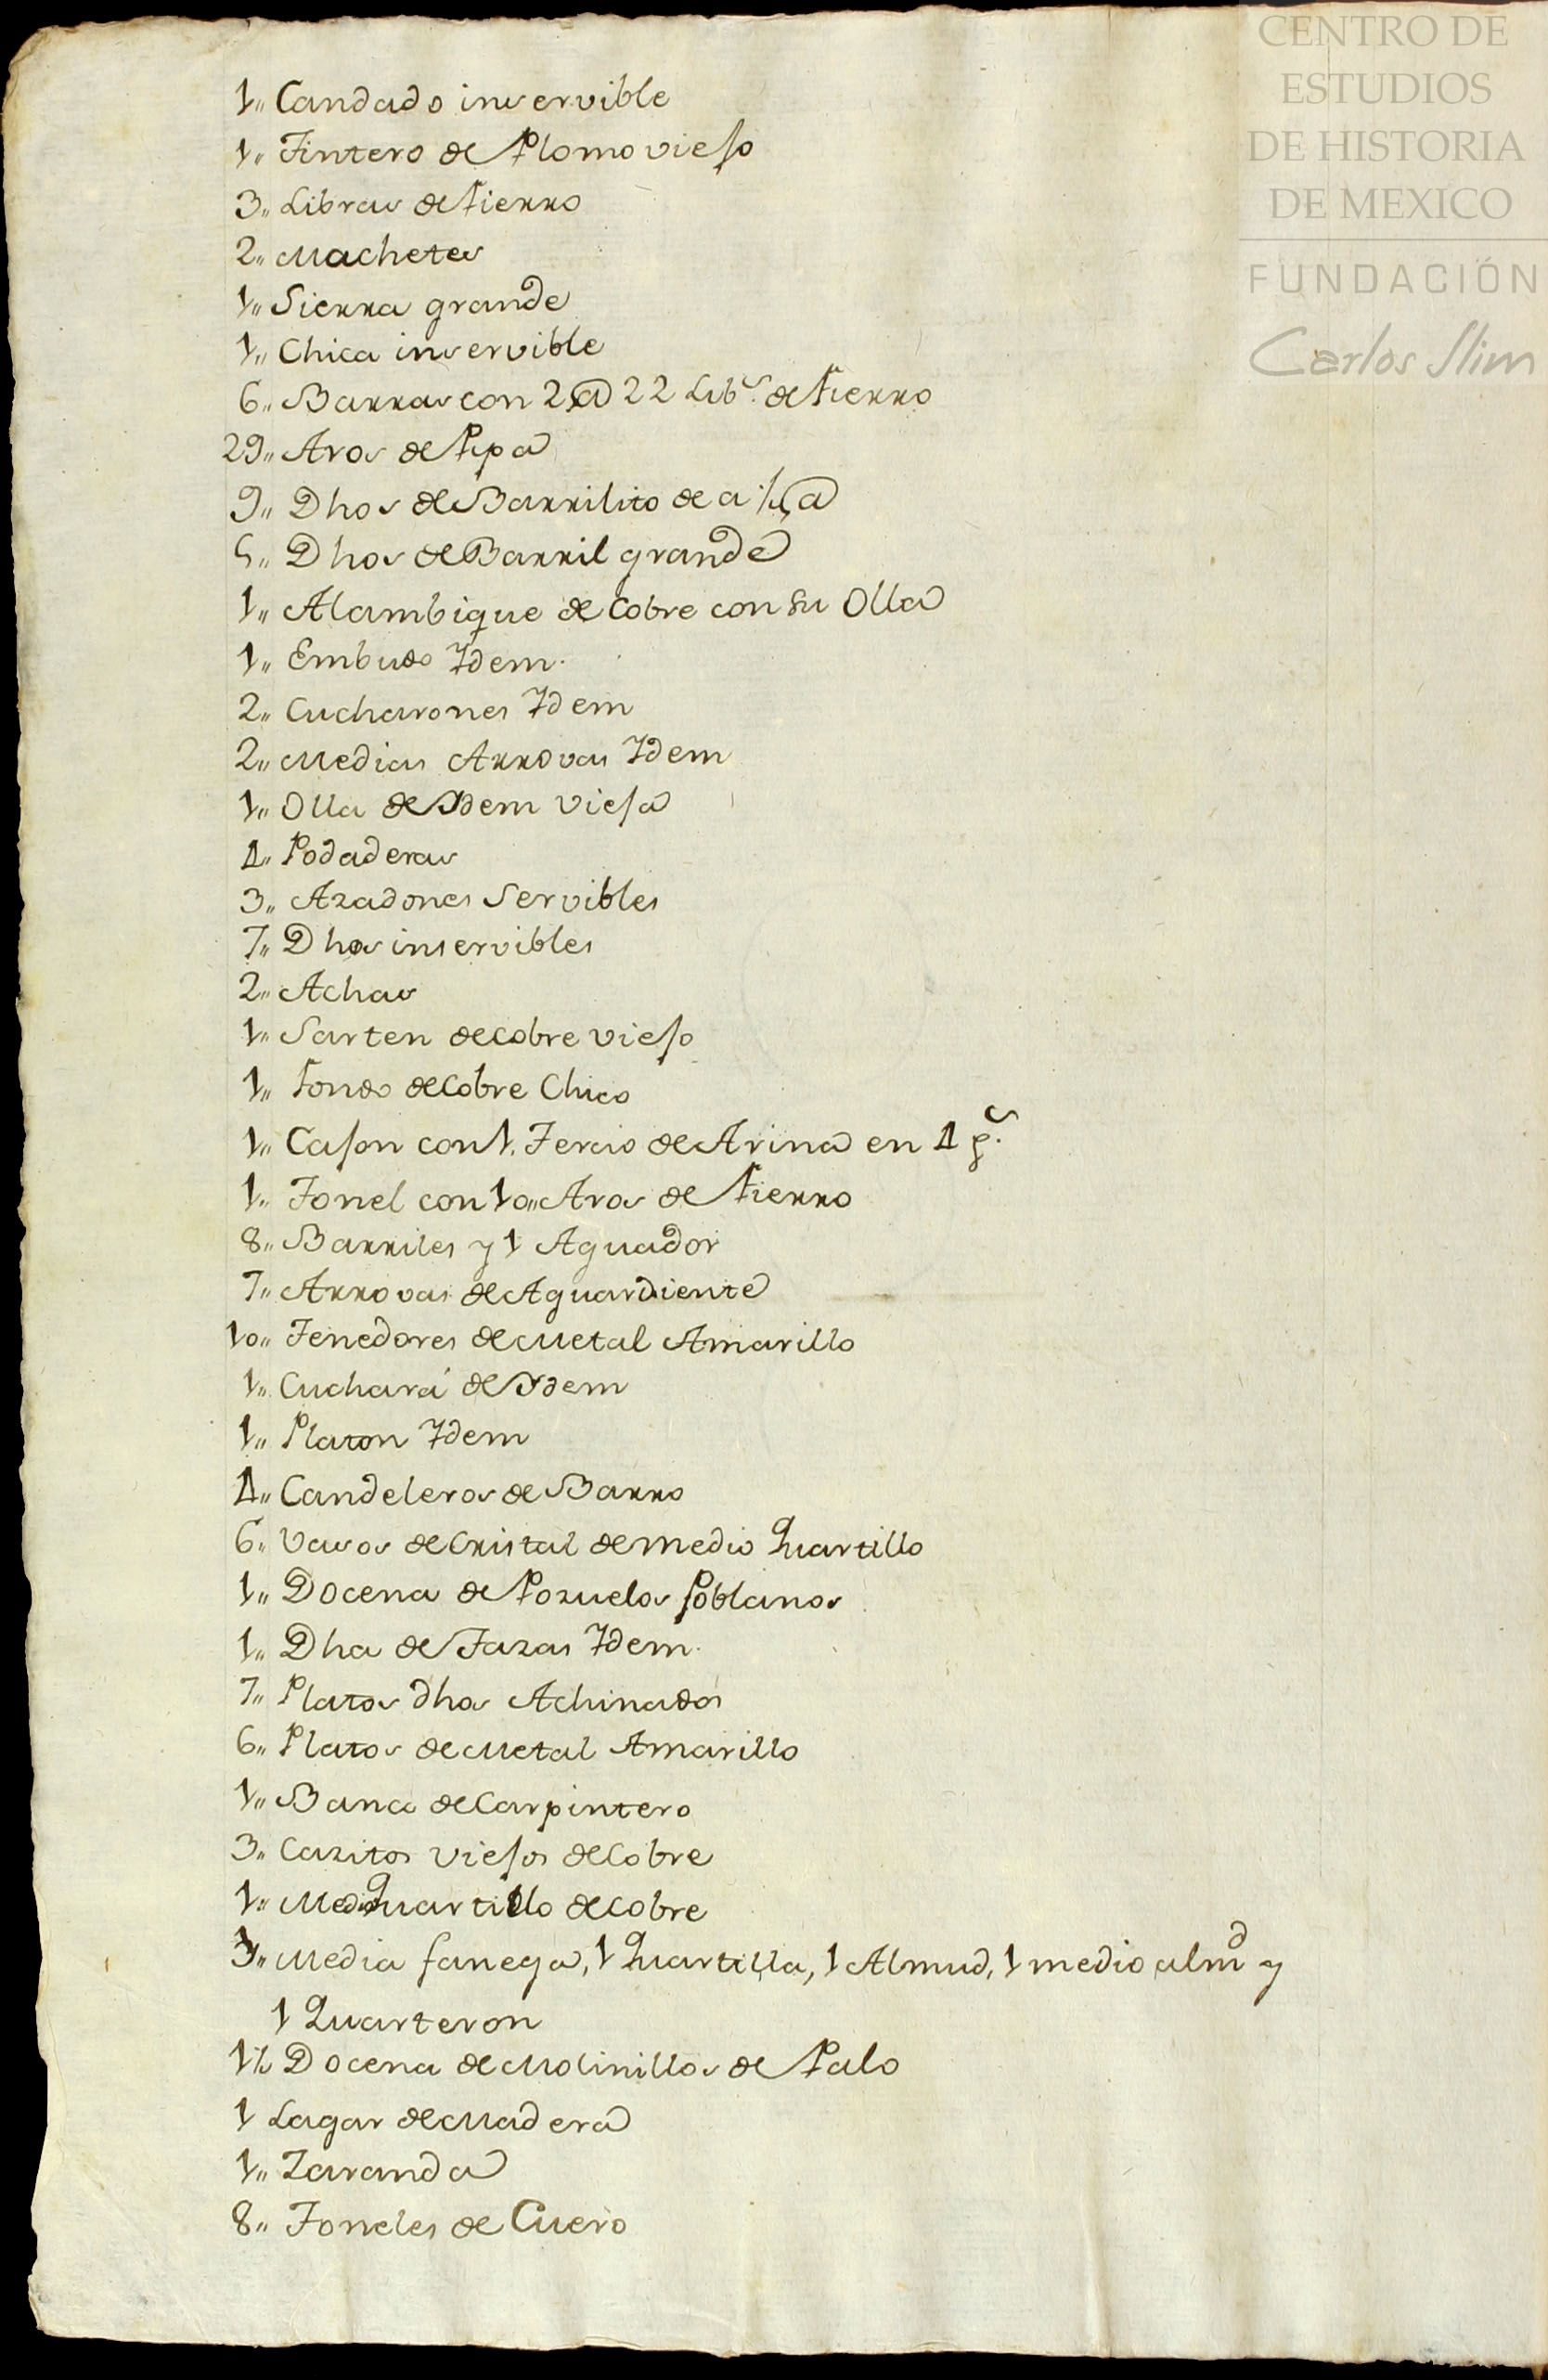 CENTRO DE
ESTUDIOS
DE HISTORIA
DE MEXICO
FUNDACIÓN
Carlos Slim
1,, Candado inservible
1,, Tintero de Plomo viejo
3,, Libras de fierro
2,, Machetes
1,, Sierra grande
1,, Chica inservible
6,, Barras con 2 @ 22 Lib.s de fierro
29,, Aros de Pipa
9,, Dhos de Barrilito de a ½ @
5,, Dhos de Barril grande
1,, Alambique de Cobre con su Olla
1,, Embudo Idem.
2,, Cucharones Idem
2,, Medias Arrovas Idem
1,, Olla de Ydem vieja
4,, Podaderas
3,, Azadones Servibles
7,, Dhos inservibles
2,, Achas
1,, Sarten de cobre viejo
1,, Fondo de Cobre Chico
1,, Cajon con 1. Tercio de Arina en 4 p.s
1,, Tonel con 10,, Aros de fierro
8,, Barriles y 1 Aguador
7,, Arrovas de Aguardiente
10,, Tenedores de Metal Amarillo
1,, Cuchara de Ydem
1,, Platon Idem
4,, Candeleros de Barro
6,, Vasos de Cristal de medio Quartillo
1,, Docena de Pozuelos Poblanos
1,, Dha de Tazas Idem.
7,, Platos dhos Achinados
6,, Platos de Metal Amarillo
1,, Banco de Carpintero
3,, Cazitos viejos de Cobre
1,, Medio Quartillo de cobre
Media fanega, 1 Quartilla, 1 Almud, 1 medio almd y
1 Quarteron
1½ Docena de Molinillos de Palo
1 Lagar de Madera
1,, Zaranda
8,, Toneles de Cuero